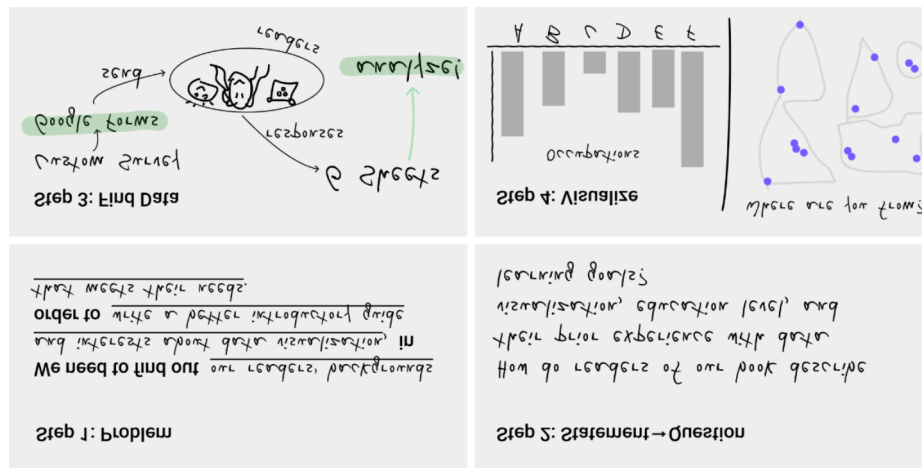 Step 1: Problem
We need to find out our readers' backgrounds
and interests about data visualization, in
order to write a better introductory guide
that meets their needs.
Step 2: Statement→Question
How do readers of our book describe
their prior experience with data
visualization, education level, and
learning goals?
Step 3: Find Data
Custom Survey
Google Forms
send
readers
responses
G Sheets
analyze!
Step 4: Visualize
Occupations
A B C D E F
Where are you from?